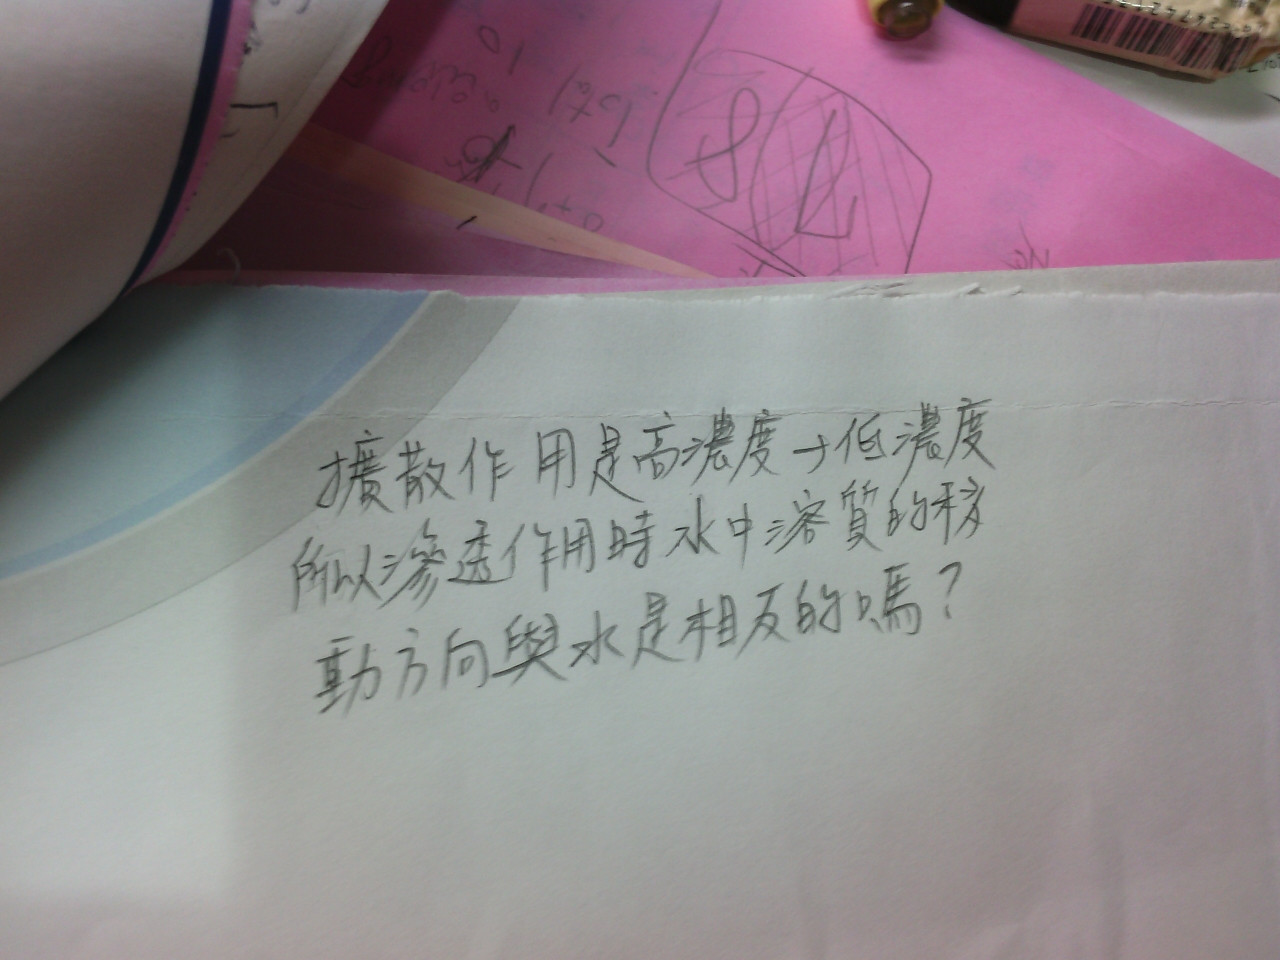 擴散作用是高濃度→低濃度
所以滲透作用時水中溶質的移
動方向與水是相反的嗎?